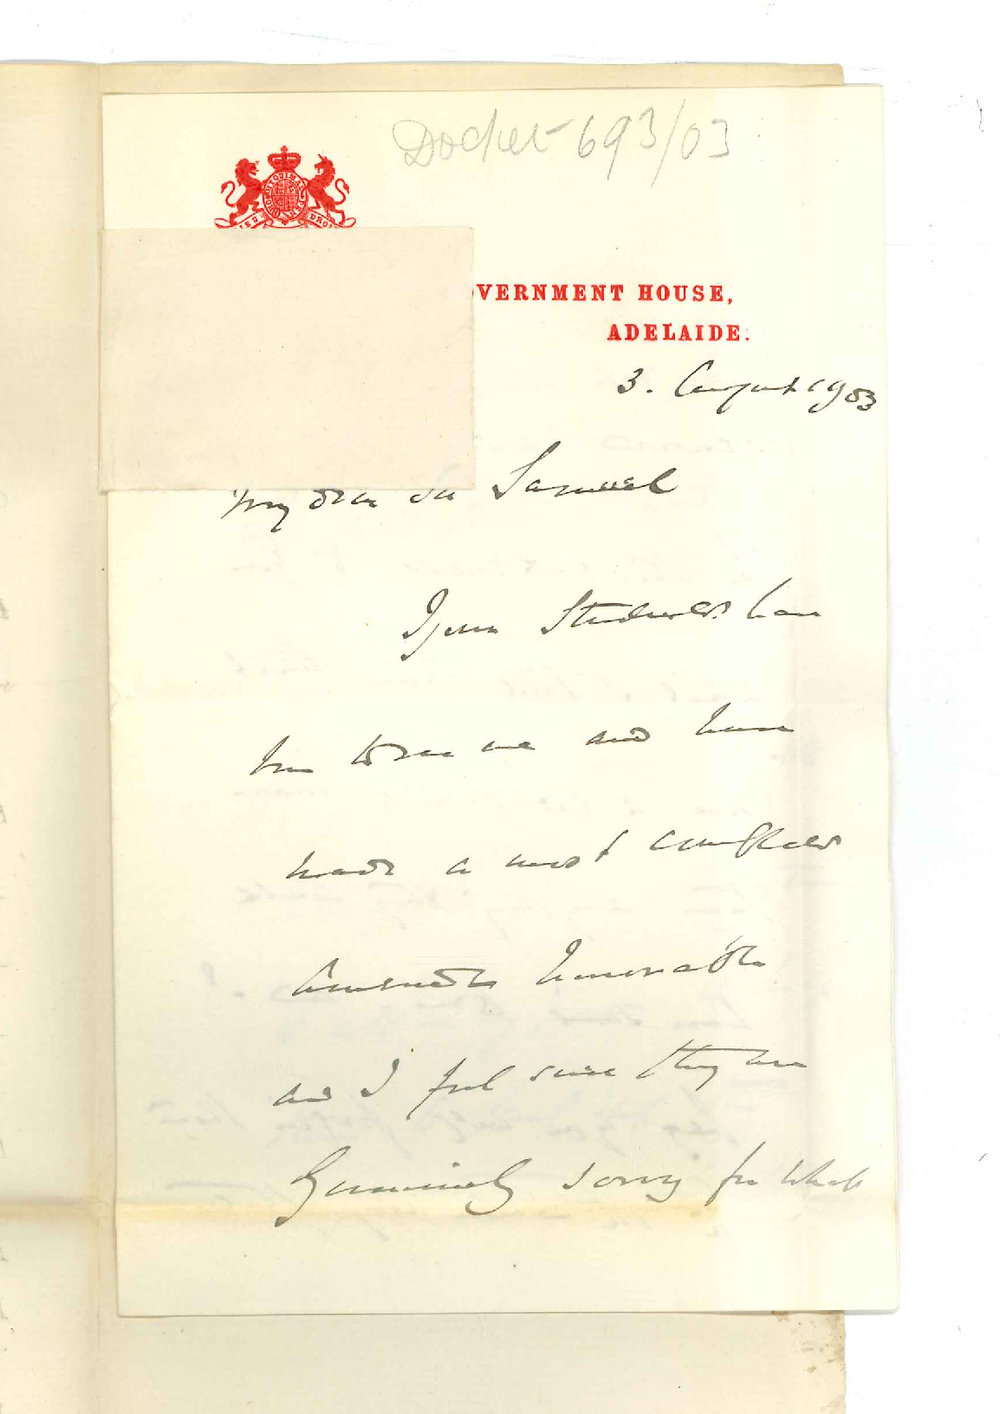 Docket 693/03
OVERNMENT HOUSE,
ADELAIDE.
3. August 1903
My dear Sir Samuel
Your Students have
been to see me and have
made a most complete
amende honorable
and I feel sure they are
Genuinely sorry for what